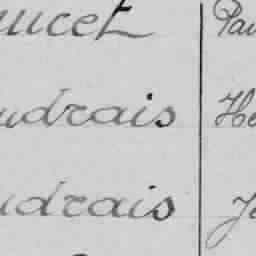 ucet Pau
udrais He
udrais Je